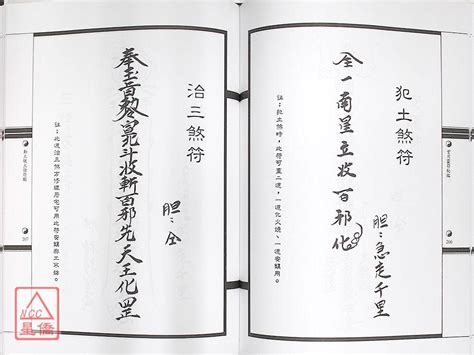 犯土煞符
胆：急走千里
全一南星立收百邪化
註：犯土煞時，此符可畫二道，一道化火燒，一道安鎮用。
206
治三煞符
胆：仝
奉玉旨 斗收斬百邪先天王化罡
註：此道治三煞方修理居宅可用此符安鎮
207
NCC
星僑